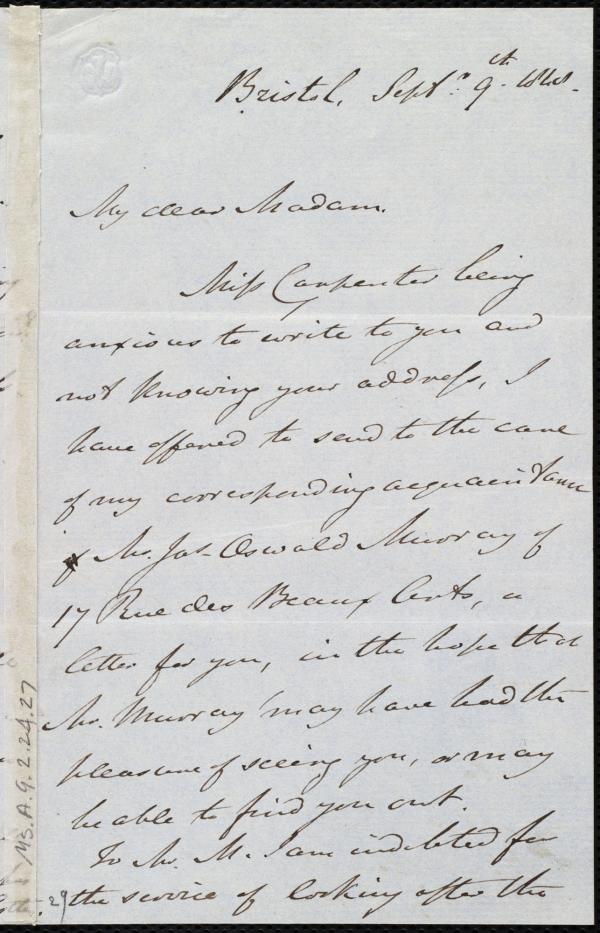 Bristol, Septr. 9th. 1848.
My dear Madam.
Miss Carpenter being
anxious to write to you and
not knowing your address, I
have offered to send to the care
of my corresponding acquaintance
Mr. Jas. Oswald Murray of
17 Rue des Beaux Arts, a
letter for you, in the hope that
Mr. Murray may have had the
pleasure of seeing you, or may
be able to find you out.
To Mr. M. I am indebted for
the service of looking after the
MS.A.9.2.24.27
29